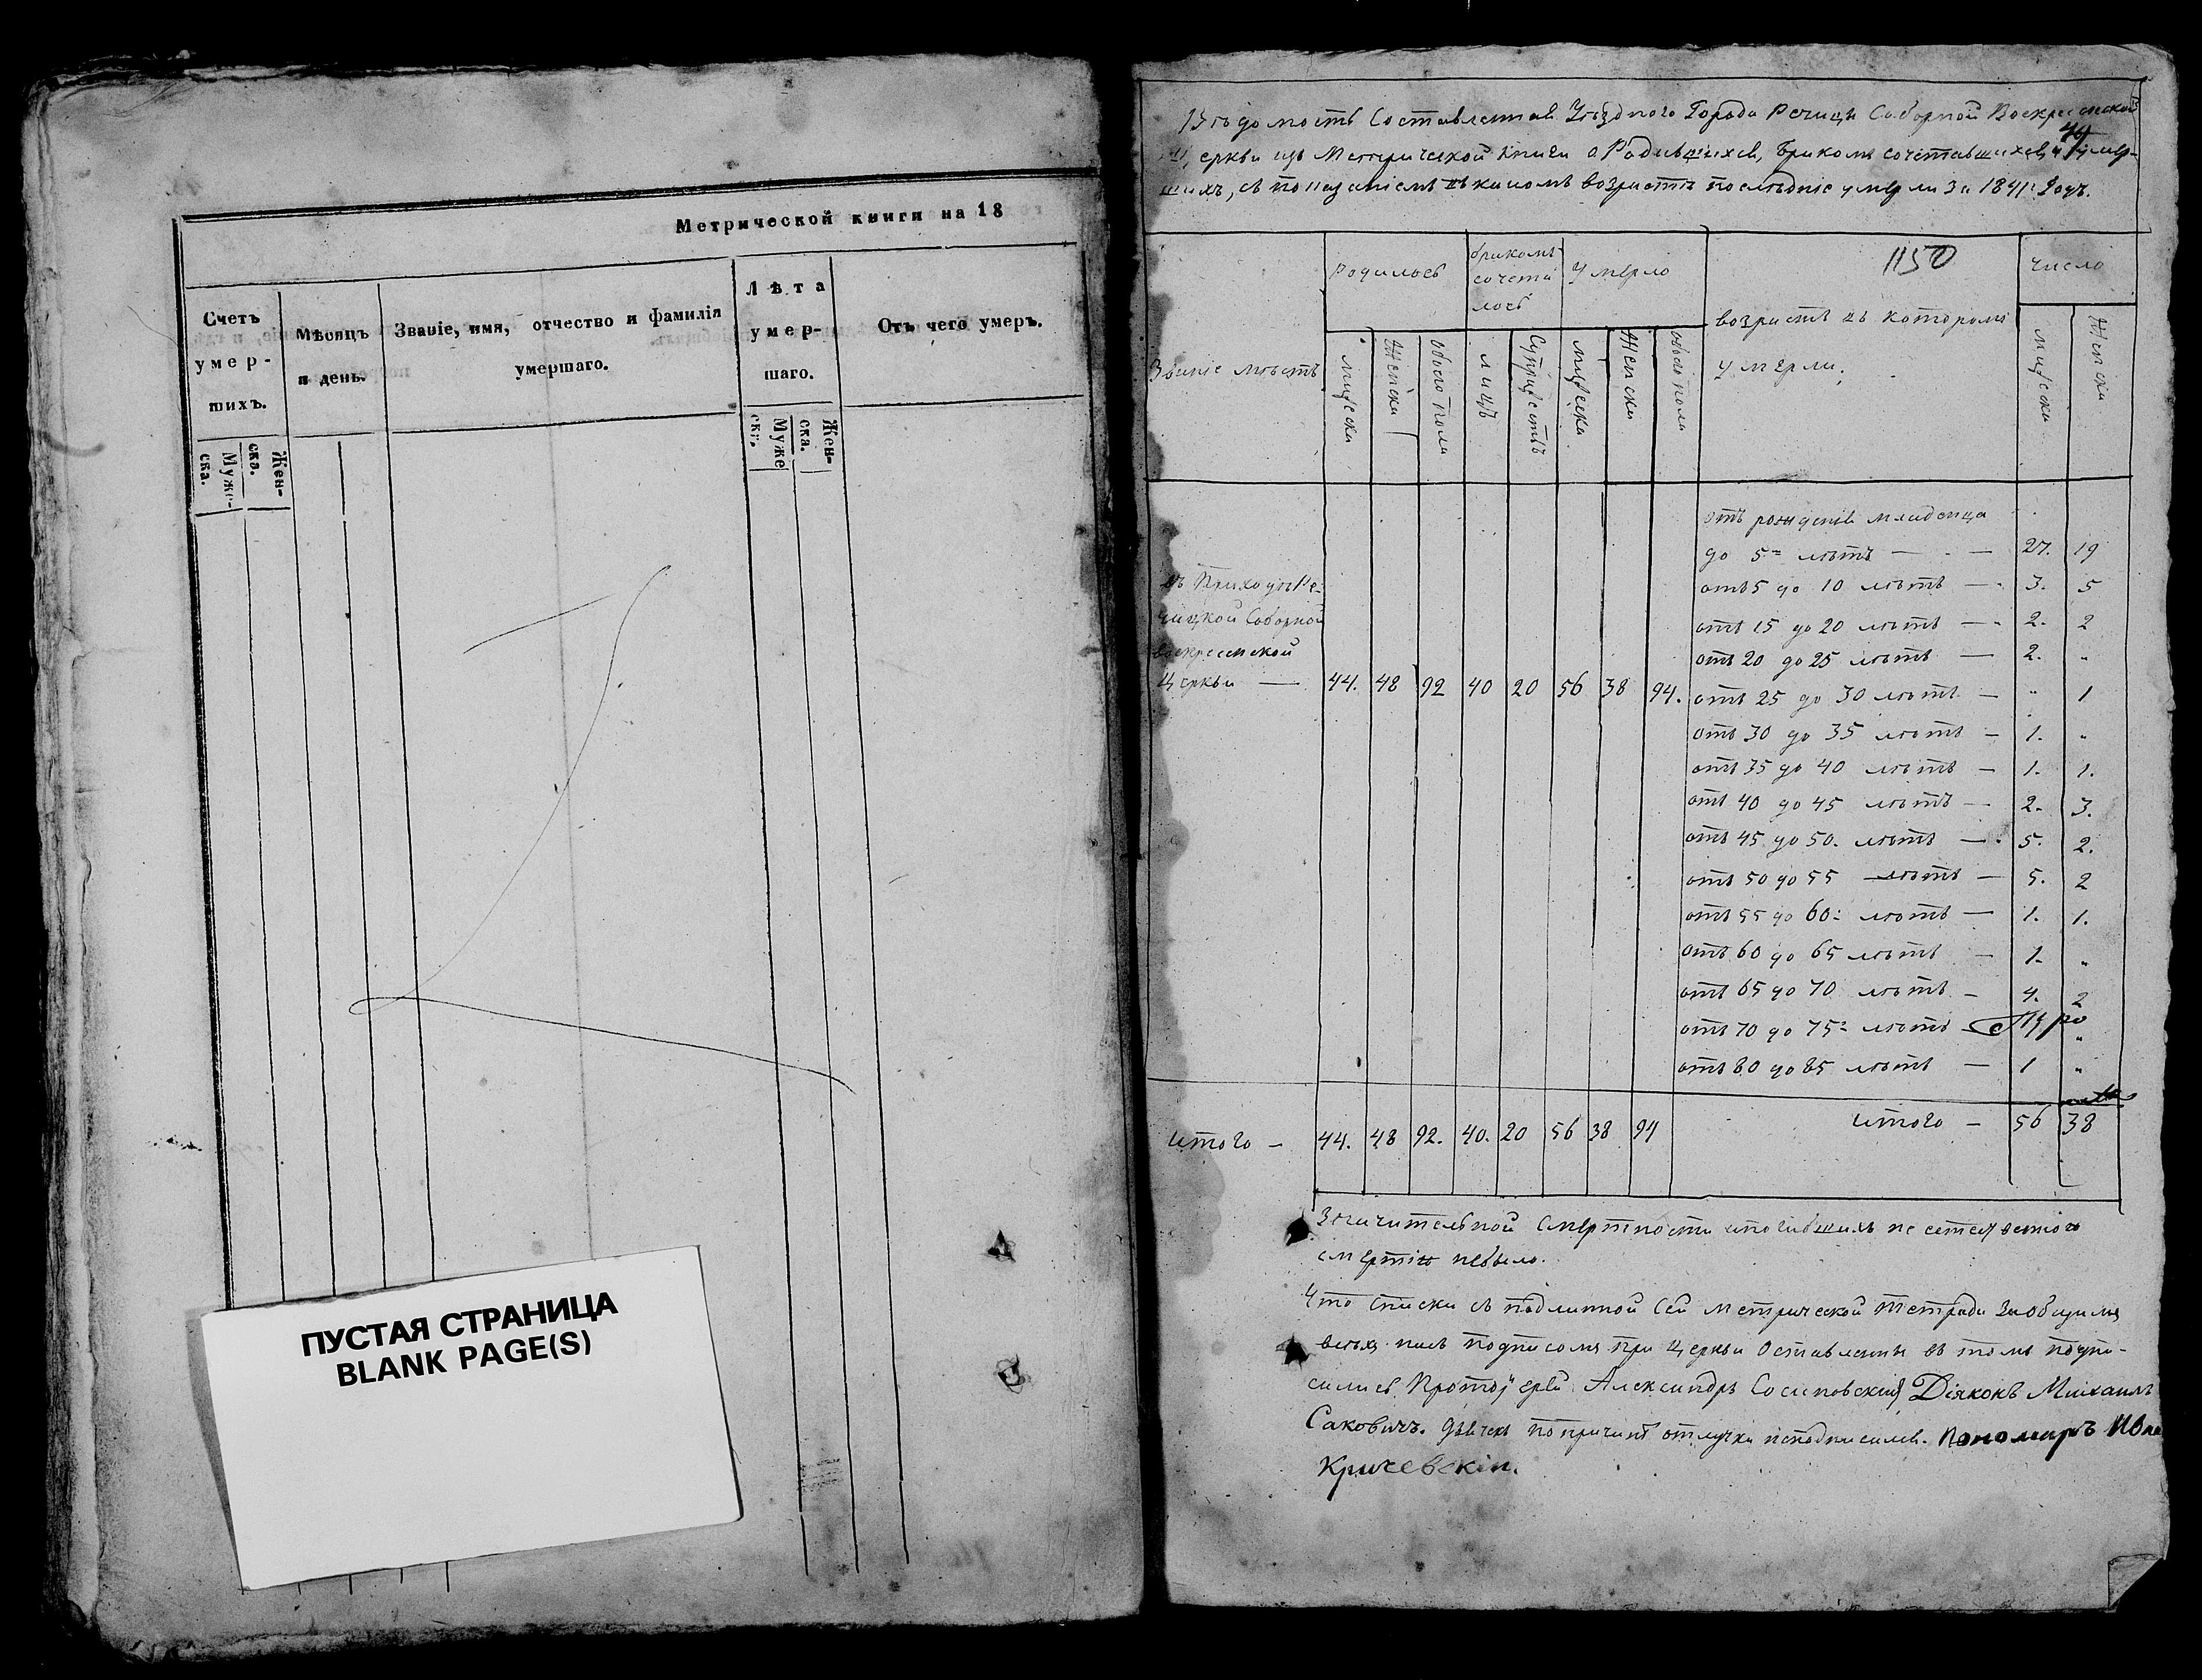 Метрической книги на 18
Счетъ умер-шихъ.
Мѣсяцъ и день.
Званіе, имя, отчество и фамилія умершаго.
Лѣта умер-шаго.
Отъ чего умеръ.
Муже-ска. Жен-ска.
Муже ска. Жен-ска.
ПУСТАЯ СТРАНИЦА
BLANK PAGE(S)
Вѣдомость Составленная Уѣзднаго Города Речицы Соборной Воскресенской
44
Церкви изъ Метрической Книги о Родившихся, бракомъ сочетавшихся и умер-
шихъ, съ показаніемъ въ какомъ возрастѣ послѣдніе умерли за 1841 годъ.
1150
Званіе мѣстъ
родилось
бракомъ сочета лось
умерло
возрастъ въ которомъ умерли.
число
мужска Женска обоего пола лицъ Супружествъ мужска Женска обоего пола мужска Женска
отъ рожденія младенца
до 5 лѣтъ — 27. 19
отъ 5 до 10 лѣтъ — 3. 5
отъ 15 до 20 лѣтъ — 2. 2
отъ 20 до 25 лѣтъ — 2. "
отъ 25 до 30 лѣтъ — " 1
отъ 30 до 35 лѣтъ — 1. "
отъ 35 до 40 лѣтъ — 1. 1.
отъ 40 до 45 лѣтъ — 2. 3.
отъ 45 до 50. лѣтъ — 5. 2.
отъ 50 до 55 лѣтъ — 5. 2
отъ 55 до 60: лѣтъ — 1. 1.
отъ 60 до 65 лѣтъ — 1. "
отъ 65 до 70 лѣтъ — 4. 2
отъ 70 до 75: лѣтъ — "
отъ 80 до 85 лѣтъ — 1 "
въ Приходѣ Ре-
чицкой Соборной
Воскресенской
Церкви — 44. 48 92 40 20 56 38 94.
Итого — 44. 48 92. 40. 20 56 38 94
Итого — 56 38
Значительной смертности и погибшихъ не естественною
смертію небыло.
Что списки съ подлинной сей метрической тетради за общимъ
всѣхъ насъ подписомъ при Церкви Оставлены въ томъ подпи-
сались Протоіерей Александръ Сосиновскій Діаконъ Михаилъ
Саковичъ. дьячекъ по причинѣ отлучки неподписался. Пономарь Иван
Кричевскій.